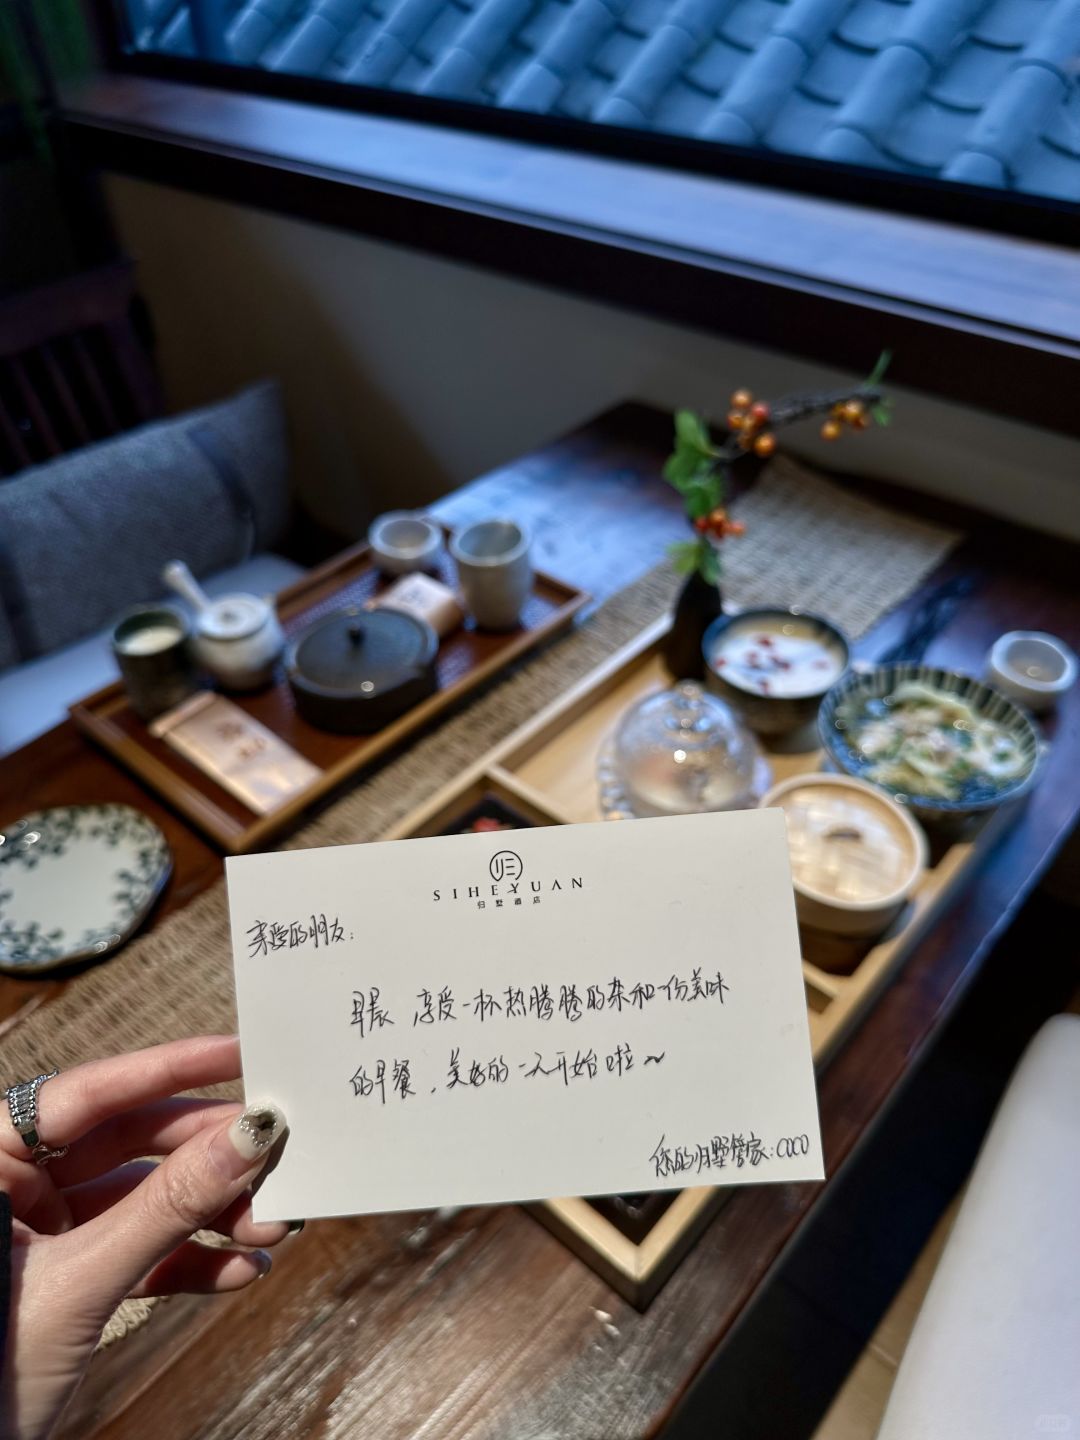 归
SIHEYUAN
归墅酒店
亲爱的朋友:
早晨 享受一杯热腾腾的茶和一份美味
的早餐，美好的一天开始啦~
您的归墅管家:COCO